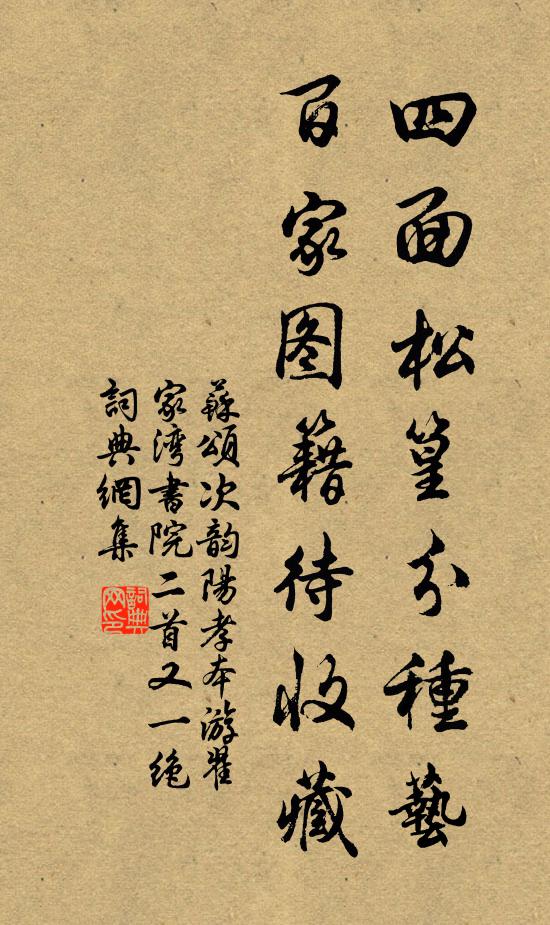 四面松篁分種藝
百家图籍待收藏
蘇頌次韵陽孝本游瞿
家湾書院二首又一绝
詞典網集
詞典
网印